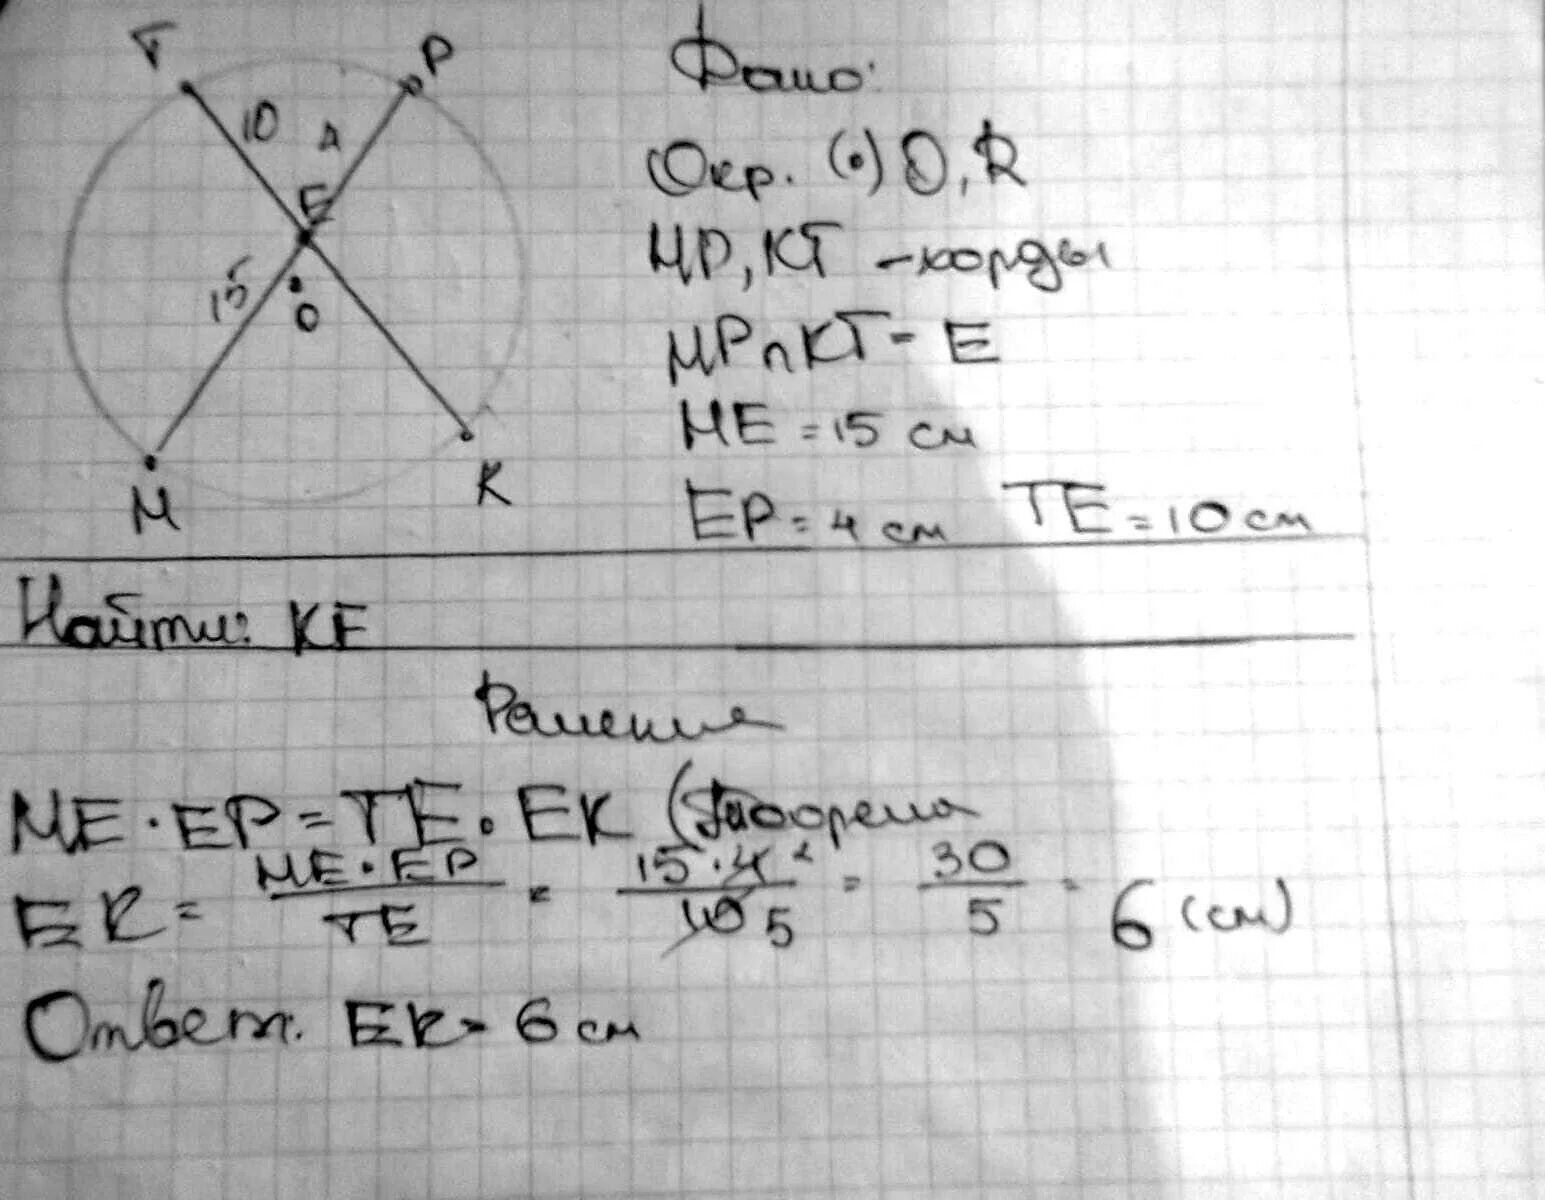 T
P
10
4
E
15
O
M
K
Дано:
Окр. (•) O, R
MP, KT - хорды
MP∩KT = E
ME = 15 см
EP = 4 см TE = 10 см
Найти: KE
Решение
ME · EP = TE · EK (теорема
EK = ME · EP / TE = 15 · 4 2 / 10 5 = 30 / 5 = 6 (см)
Ответ. EK = 6 см